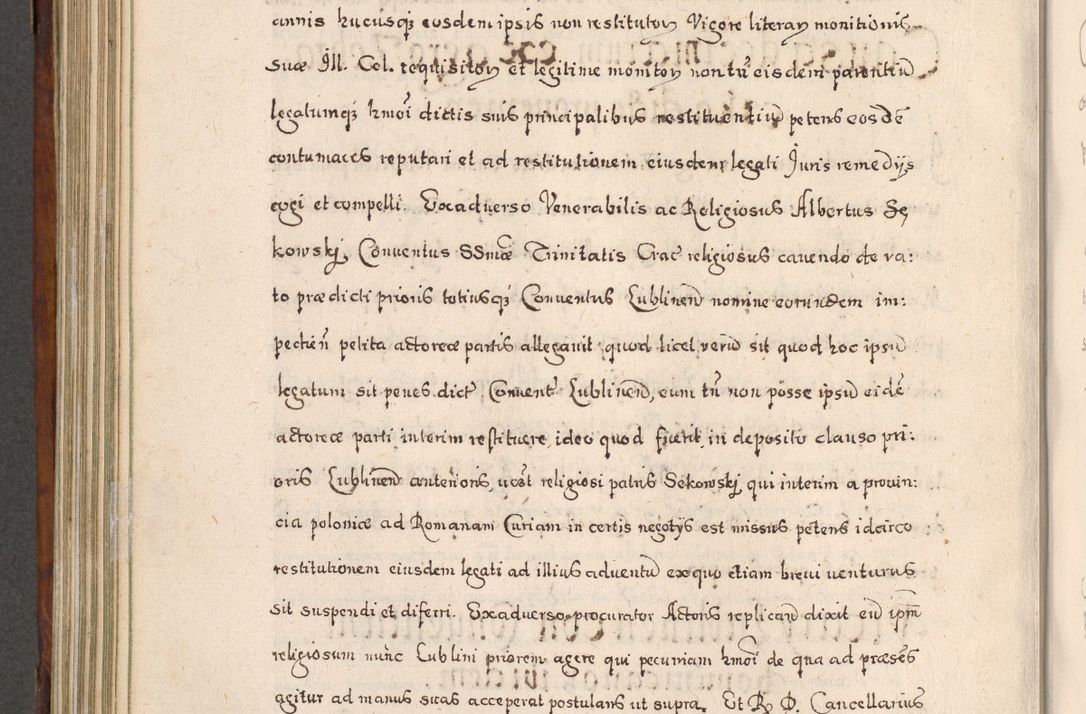 annis hucusq₃ eosdem ipsis non restitutor̃ Vigore literar̃ monitionis
suæ Ill. Cel. requisitor̃ et legitime monitor̃ non tñ eisdem parentiũ
legatumq₃ hmoi dictis suis principalibus restituentiũ petens eosdẽ
contumaces reputari et ad restitutionem eiusdem legati Juris remedijs
cogi et compelli. Exaduerso Venerabilis ac Religiosus Albertus Sę
kowskj, Conuentus SSmæ Trinitatis Crac̃ religiosus cauendo de ra:
to prædicti prioris totiusq₃ Conuentus Lublinen̄ nomine eorundem im:
pectien̄ petita actoreæ partis allegauit, quod licet verũ sit quod hoc ipsũ
legatum sit penes dict̃ Conuent̃ Lublinen̄, eum tñ non posse ipsũ eidẽ
actoreæ parti interim restituere, ideo quod fuerit in deposito clauso pri:
oris Lublinen̄ anterioris, religiosi patris Sekowskj, qui interim a prouin:
cia poloniæ ad Romanam Curiam in certis negotÿs est missus petens idcirco
restitutionem eiusdem legati ad illius aduentũ ex quo etiam breui venturus
sit suspendi et diferri. Exaduerso procurator Actoris replicañd dixit eũ ipm̃
religiosum nunc Lublini priorem agere qui pecuniam hmoi de qua ad præsẽs
agitur ad manus suas acceperat postulans ut supra. Et R. D. Cancellarius